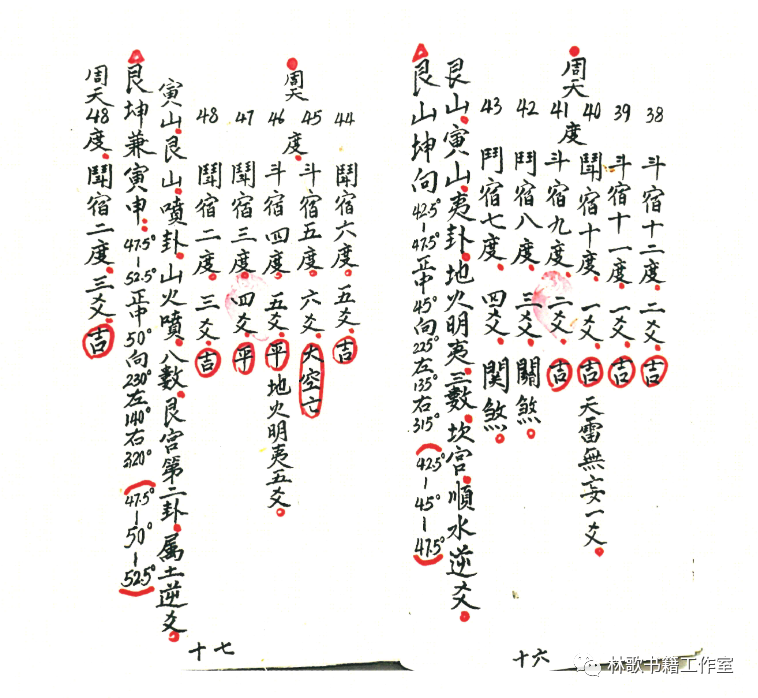 周天度
38 斗宿十二度.二爻.吉
39 斗宿十一度.一爻.吉
40 鬪宿十度.一爻.吉 天雷無妄一爻.
41 斗宿九度.二爻.吉
42 鬥宿八度.三爻.關煞.
43 鬥宿七度.四爻.関煞.
艮山.寅山.夷卦.地火明夷.三數.坎宮.順水逆爻.
艮山坤向42.5°-47.5°正中45°向225°左135°右315°(42.5°-45°-47.5°)
十六
周天度
44 鬪宿六度.五爻.吉
45 斗宿五度.六爻.大空亡
46 斗宿四度.五爻.平 地火明夷五爻.
47 鬪宿三度.四爻.平
48 鬪宿二度.三爻.吉
寅山.艮山.噴卦.山火噴.八數.艮宮第二卦.属土逆爻.
艮坤兼寅申:47.5°-52.5°正中50°向230°左140°右320°(47.5°-50°-52.5°)
周天48度.鬪宿二度.三爻.吉
十七
林歌书籍工作室